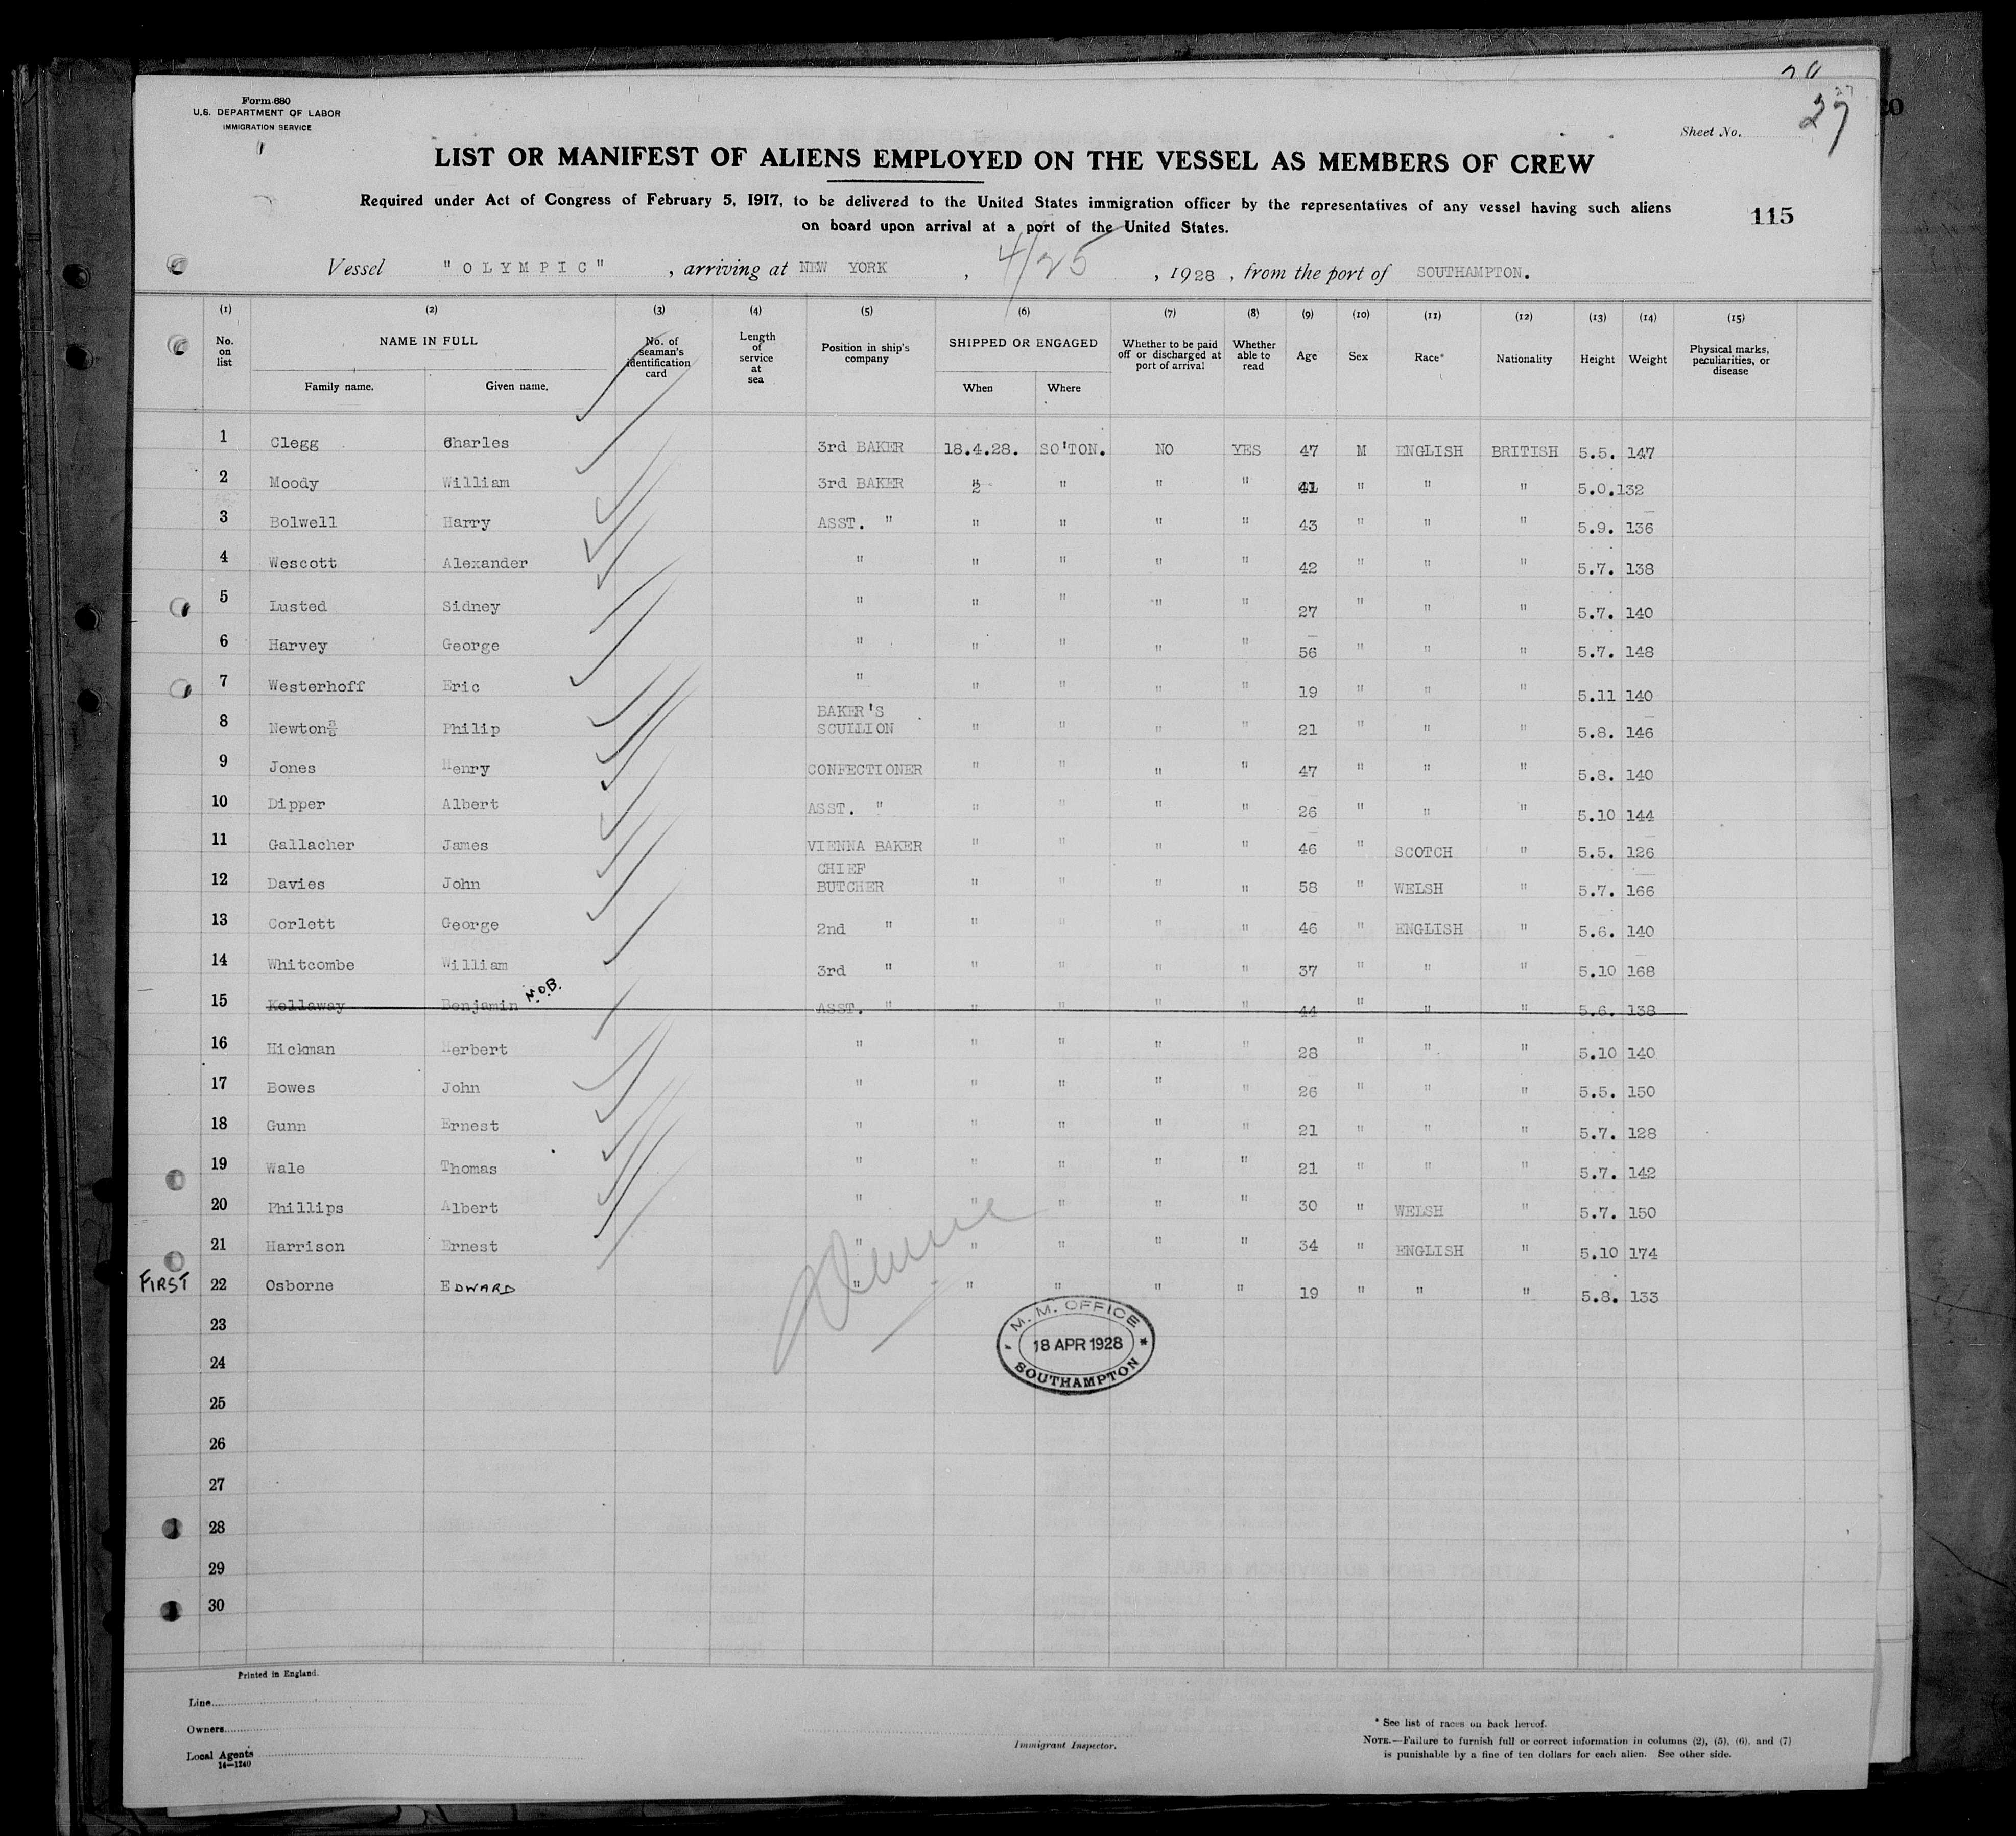 Form 680
U.S. DEPARTMENT OF LABOR
IMMIGRATION SERVICE
27
Sheet No.
LIST OR MANIFEST OF ALIENS EMPLOYED ON THE VESSEL AS MEMBERS OF CREW
Required under Act of Congress of February 5, 1917, to be delivered to the United States immigration officer by the representatives of any vessel having such aliens
on board upon arrival at a port of the United States.
115
Vessel "OLYMPIC", arriving at NEW YORK, 4/25, 1928, from the port of SOUTHAMPTON.
(1) (2) (3) (4) (5) (6) (7) (8) (9) (10) (11) (12) (13) (14) (15)
No. on list NAME IN FULL Family name. Given name. No. of seaman's identification card Length of service at sea Position in ship's company SHIPPED OR ENGAGED When Where Whether to be paid off or discharged at port of arrival Whether able to read Age Sex Race* Nationality Height Weight Physical marks, peculiarities, or disease
1 Clegg Charles 3rd BAKER 18.4.28. SO'TON. NO YES 47 M ENGLISH BRITISH 5.5. 147
2 Moody William 3rd BAKER " " " " 41 " " " 5.0. 132
3 Bolwell Harry ASST. " " " " " 43 " " " 5.9. 136
4 Wescott Alexander " " " " " 42 " " " 5.7. 138
5 Lusted Sidney " " " " " 27 " " " 5.7. 140
6 Harvey George " " " " " 56 " " " 5.7. 148
7 Westerhoff Eric " " " " " 19 " " " 5.11 140
8 Newton Philip BAKER'S SCULLION " " " " 21 " " " 5.8. 146
9 Jones Henry CONFECTIONER " " " " 47 " " " 5.8. 140
10 Dipper Albert ASST. " " " " " 26 " " " 5.10 144
11 Gallacher James VIENNA BAKER " " " " 46 " SCOTCH " 5.5. 126
12 Davies John CHIEF BUTCHER " " " " 58 " WELSH " 5.7. 166
13 Corlett George 2nd " " " " " 46 " ENGLISH " 5.6. 140
14 Whitcombe William 3rd " " " " " 37 " " " 5.10 168
15 Kellaway Benjamin N.O.B. ASST. " " " " " 44 " " " 5.6. 138
16 Hickman Herbert " " " " " 28 " " " 5.10 140
17 Bowes John " " " " " 26 " " " 5.5. 150
18 Gunn Ernest " " " " " 21 " " " 5.7. 128
19 Wale Thomas " " " " " 21 " " " 5.7. 142
20 Phillips Albert " " " " " 30 " WELSH " 5.7. 150
21 Harrison Ernest " " " " " 34 " ENGLISH " 5.10 174
FIRST 22 Osborne EDWARD " " " " " 19 " " " 5.8. 133
23
M. M. OFFICE
18 APR 1928
SOUTHAMPTON
24
25
26
27
28
29
30
Printed in England.
Line
Owners
Local Agents
14—1240
Immigrant Inspector.
* See list of races on back hereof.
NOTE.—Failure to furnish full or correct information in columns (2), (5), (6), and (7)
is punishable by a fine of ten dollars for each alien. See other side.